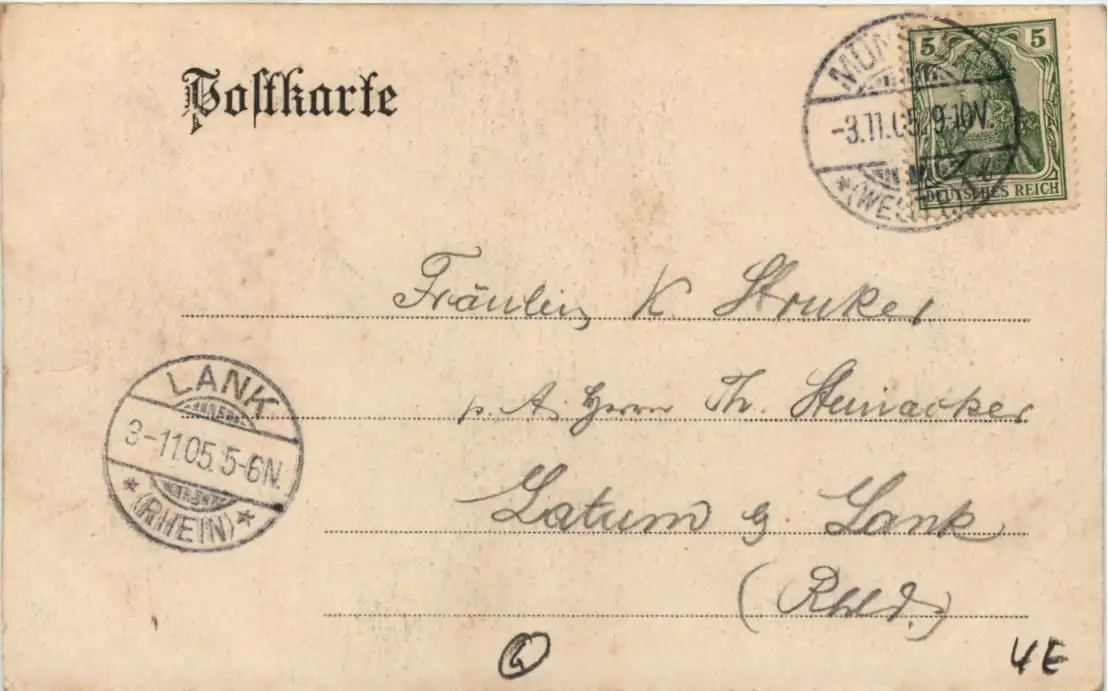 Postkarte
5 5
DEUTSCHES REICH
MÜNS
-3.11.05. 9-10V.
* (WEST
Fräulein K. Struker
p. A. Herrn Th. Steinacker
Latum b. Lank
(Rhld.)
LANK
3-11.05. 5-6N.
* (RHEIN) *
4E